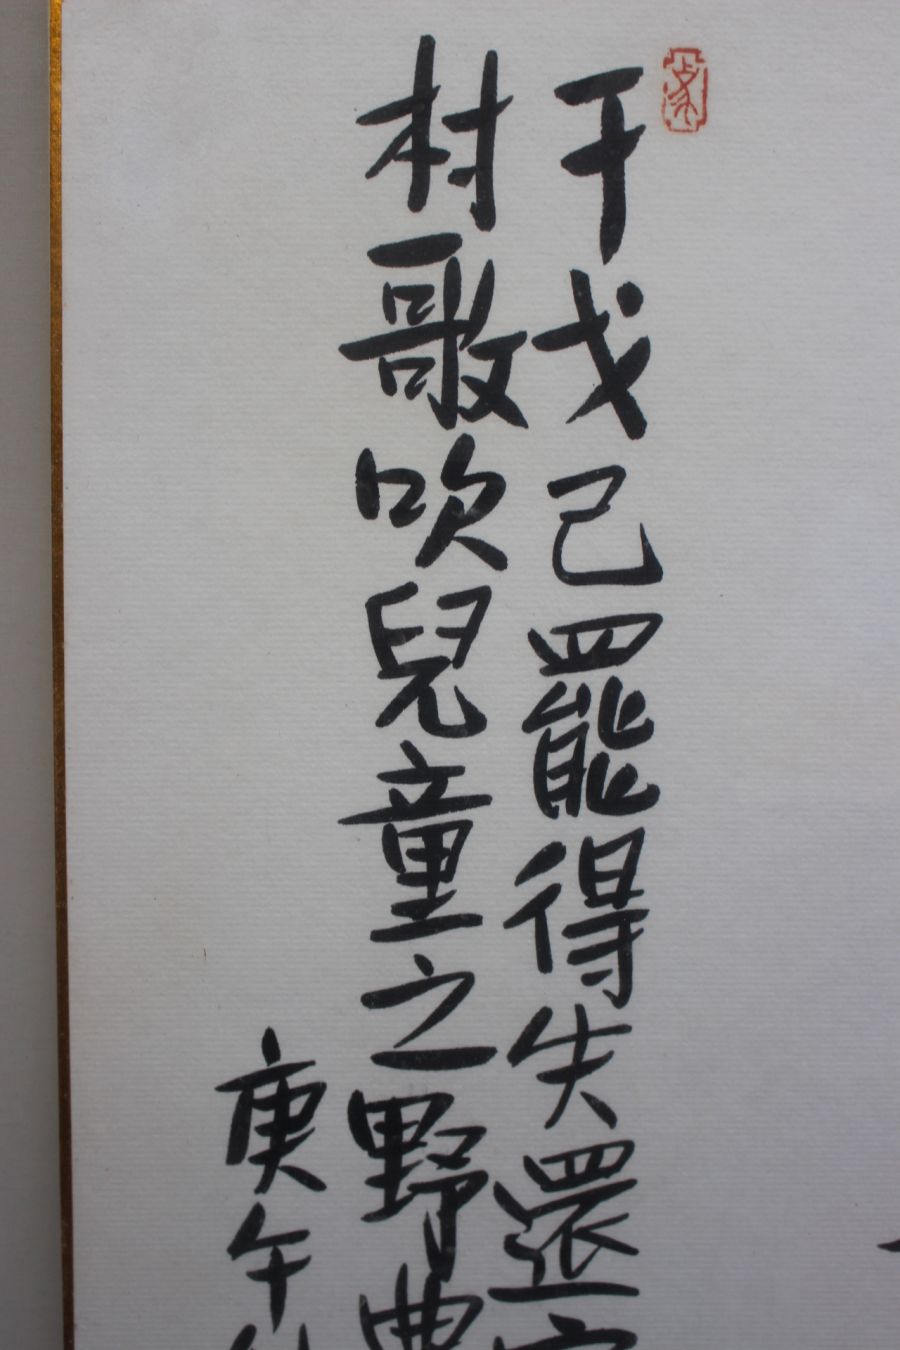 干戈已罷得失還
村歌吹兒童之野
庚午